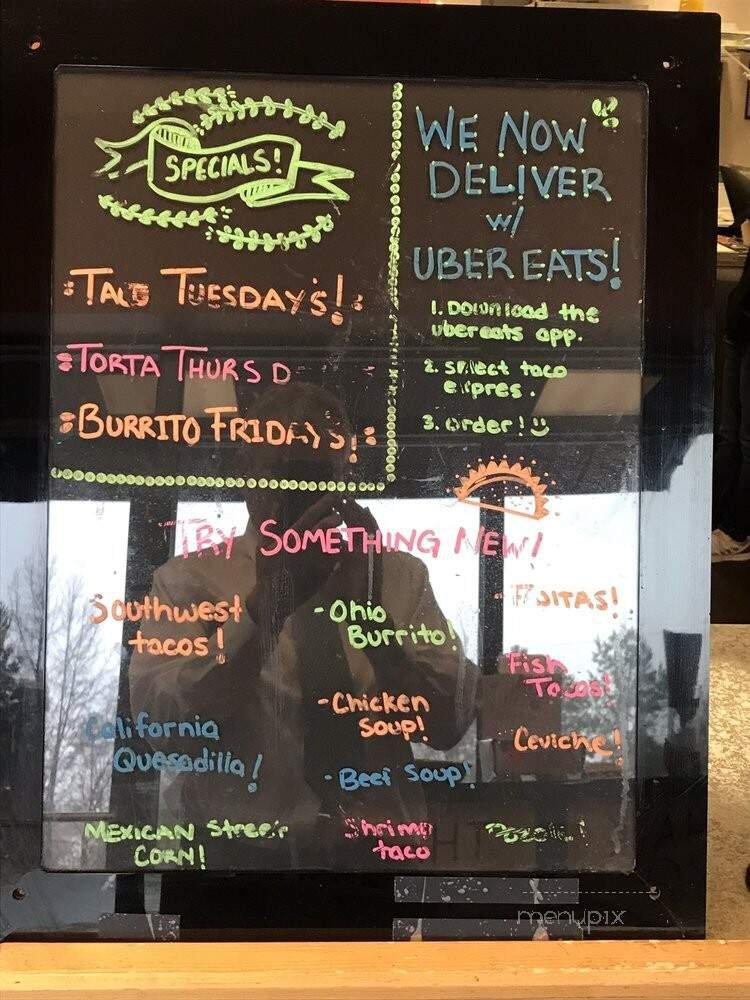 SPECIALS!
TACO TUESDAY'S!
TORTA THURSD
BURRITO FRIDAYS!
WE NOW
DELIVER
w/
UBER EATS!
1. Download the
ubereats app.
2. select taco
expres.
3. order!
TRY SOMETHING NEW!
Southwest
tacos!
California
Quesadilla!
MEXICAN Street
CORN!
-Ohio
Burrito!
-Chicken
Soup!
-Beef Soup!
Shrimp
taco
- FAJITAS!
Fish
Tacos!
Ceviche!
menupix